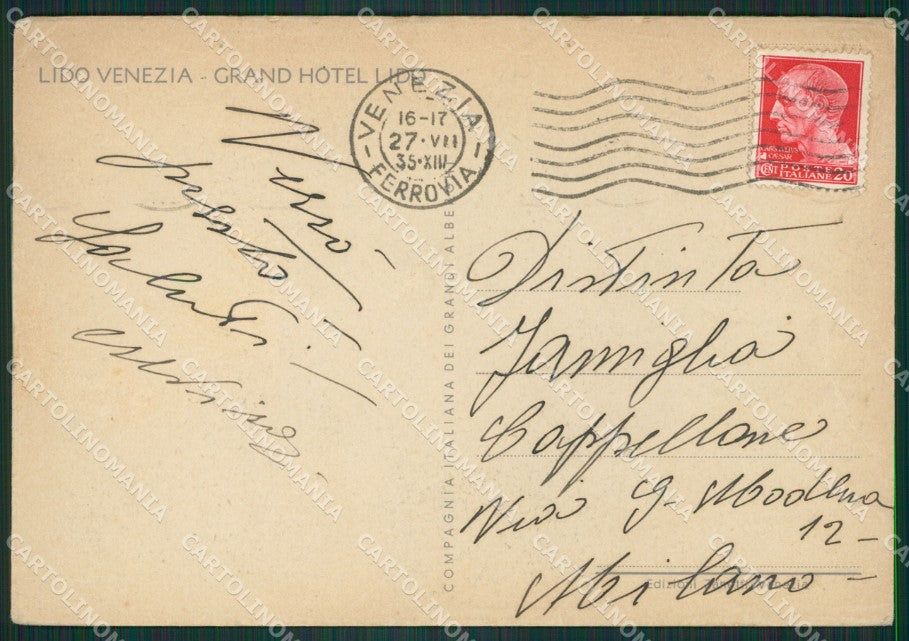 LIDO VENEZIA - GRAND HÔTEL LIDO
VENEZIA
16-17
27·VII
35·XIII
FERROVIA
CAESAR
CENT POSTE 20
ITALIANE
Saluti
COMPAGNIA ITALIANA DEI GRANDI ALBE
Distinta
Famiglia
Cappellone
Via G. Modena
12-
Milano-
CARTOLINOMANIA